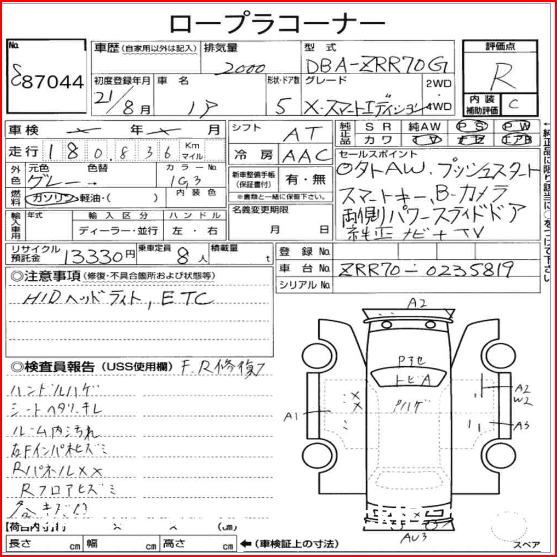 ロープラコーナー
No. 87044
車歴(自家用以外は記入) 排気量 2000 型式 DBA-ZRR70G
初度登録年月 21/8月 車名 ノア 形状・ドア数 5 グレード X・スマートエディション 2WD 4WD
評価点 R
内装補助評価 C
車検 年 月 シフト AT
純正品 SR 純AW PS PW
カワ
走行 180,836 Km マイル 冷房 AAC
セールスポイント
外色 元色 グレー 色替 カラーNo. 1G3
新車整備手帳(保証書付) 有・無
※書類と一緒に保管下さい。
燃料 ガソリン・軽油・( ) 内装色
社外AW、プッシュスタート
スマートキー、Bカメラ
両側パワースライドドア
純正ナビTV
輸入車用 年式 輸入区分 ディーラー・並行 ハンドル 左・右
名義変更期限 月 日
リサイクル預託金 13330円 乗車定員 8人 積載量 t
登録No.
車台No. ZRR70-0235819
シリアルNo.
◎注意事項(修復・不具合箇所および状態等)
HIDヘッドライト, ETC
◎検査員報告(USS使用欄) F.R修復
ハンドルハゲ
シートヘタリ・キレ
ルーム内汚れ
左Fインパネヒズミ
RパネルXX
Rフロアヒズミ
A2
トビA
アハゲ
A1
A2
W2
A3
AU3
スペア
長さ cm 幅 cm 高さ cm
←(車検証上の寸法)
←純正品に限り該当に○をつけて下さい。